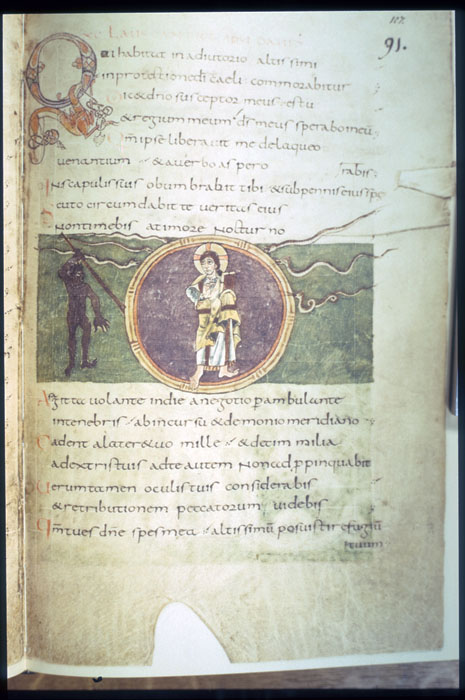 91.
Qui habitat in adiutorio altissimi
in protectione dī caeli commorabitur
Dic& dno susceptor meus es tu
& regium meum ds meus sperabo in eū
Qm̄ ipse liberauit me de laqueo
uenantium & a uerbo aspero
rabis
In scapulis suis obumbrabit tibi & sub pennis eius spe
Scuto circumdabit te ueritas eius
Non timebis a timore nocturno
Agitta uolante in die a negotio p̄ambulante
in tenebris ab incursu & demonio meridiano
Cadent a latere tuo mille & decim milia
a dextris tuis ad te autem non adp̄pinquabit
Uerumtamen oculis tuis considerabis
& retributionem peccatorum uidebis
Qm̄ tu es dn̄e spes mea altissimū posuisti refugiū
tuum